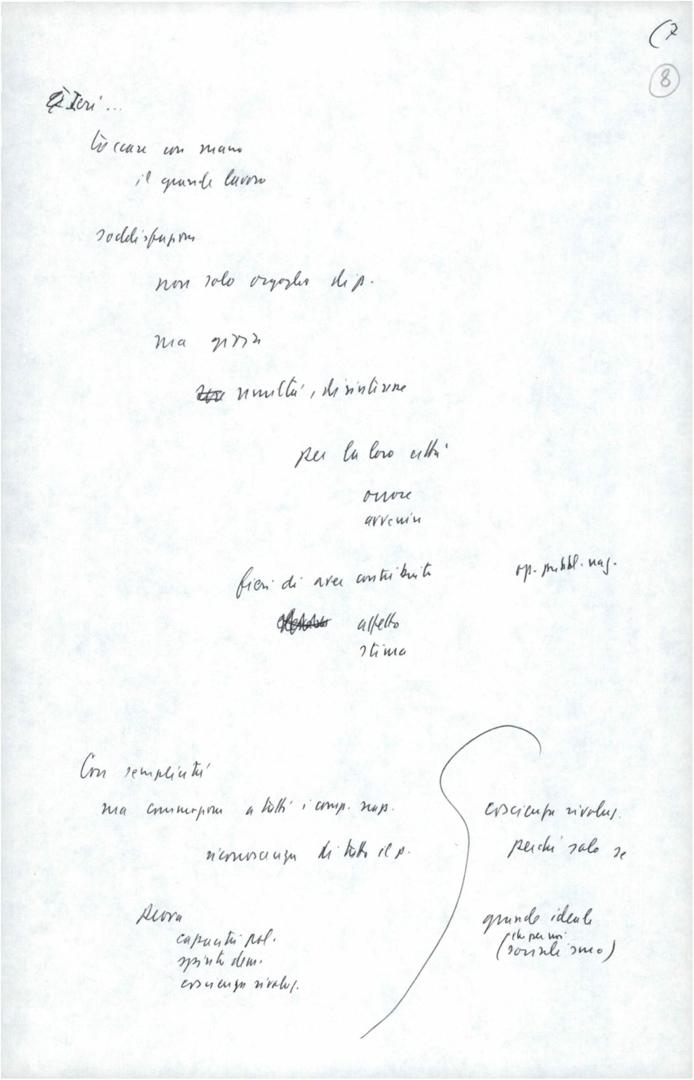 (7
8
Ieri...
toccare con mano
il grande lavoro
soddisfazione
non solo orgoglio di p.
ma gioia
umiltà, disinteresse
per la loro città
onore
avvenire
fieri di aver contribuito
op. pubbl. nap.
affetto
stima
Con semplicità
ma commozione a tutti i comp. nap.
riconoscenza di tutto il p.
Prova
capacità pol.
spirito dem.
coscienza rivoluz.
coscienza rivoluz.
perché solo se
grande ideale
(che per noi
socialismo)